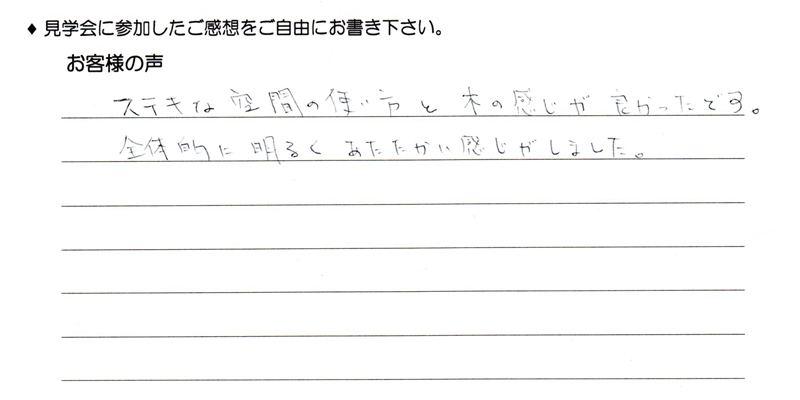 ♦ 見学会に参加したご感想をご自由にお書き下さい。
お客様の声
ステキな空間の使い方と木の感じが良かったです。
全体的に明るくあたたかい感じがしました。